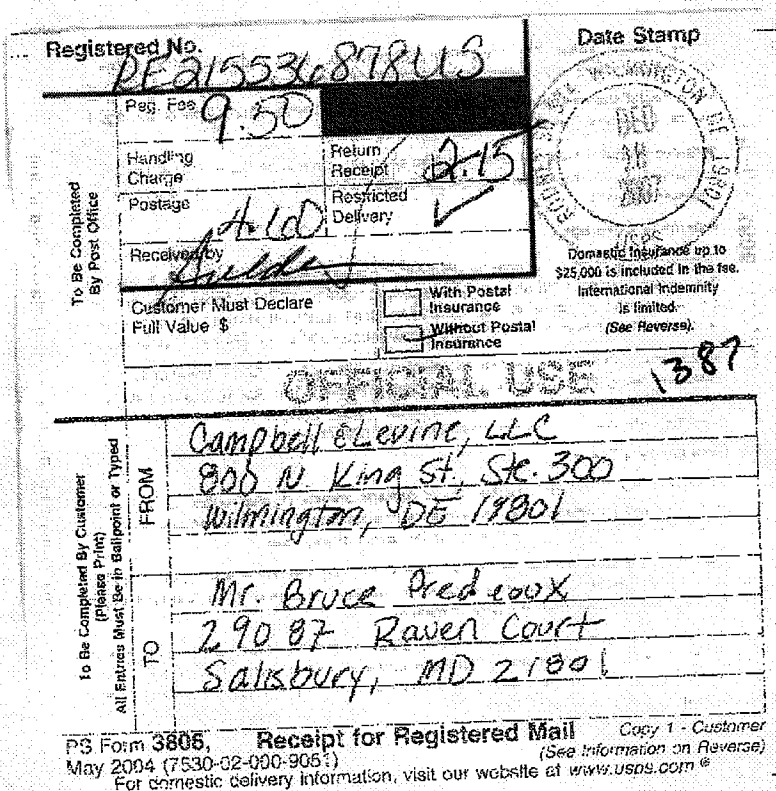 Registered No.
RE215536878US
Date Stamp
To Be Completed
By Post Office
Reg. Fee 9.50
Handling
Charge
Return
Receipt 2.15
Postage 4.60
Restricted
Delivery
Received by
WILMINGTON DE 19801
DEC
18
2007
USPS
Domestic Insurance up to
$25,000 is included in the fee.
International Indemnity
is limited.
(See Reverse).
Customer Must Declare
Full Value $
With Postal
Insurance
Without Postal
Insurance
OFFICIAL USE
1387
To Be Completed By Customer
(Please Print)
All Entries Must Be in Ballpoint or Typed
FROM
Campbell & Levine, LLC
800 N. King St., Ste. 300
Wilmington, DE 19801
TO
Mr. Bruce Predeoux
29087 Raven Court
Salisbury, MD 21801
PS Form 3806, Receipt for Registered Mail Copy 1 - Customer
May 2004 (7530-02-000-9051) (See Information on Reverse)
For domestic delivery information, visit our website at www.usps.com ®